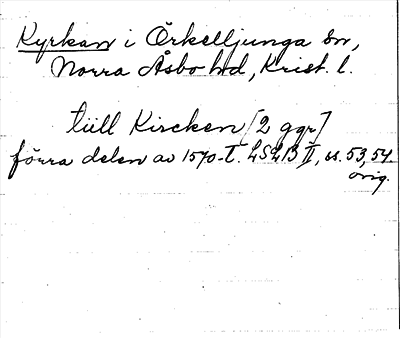 Kyrkan i Örkelljunga sn,
Norra Åsbo hd, Krist. l.
tiill Kircken [2 ggr]
förra delen av 1570-t. LSLB II, ss. 53, 54.
orig.